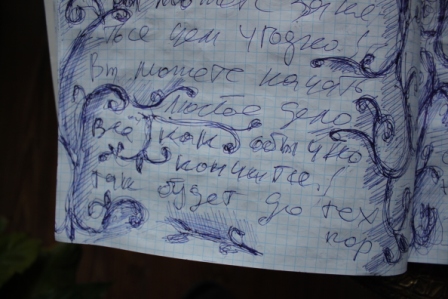 может зани
ться чем угодно!!
Вы можете начать
любое дело
Всё как обычно
кончится!
так будет до тех
пор